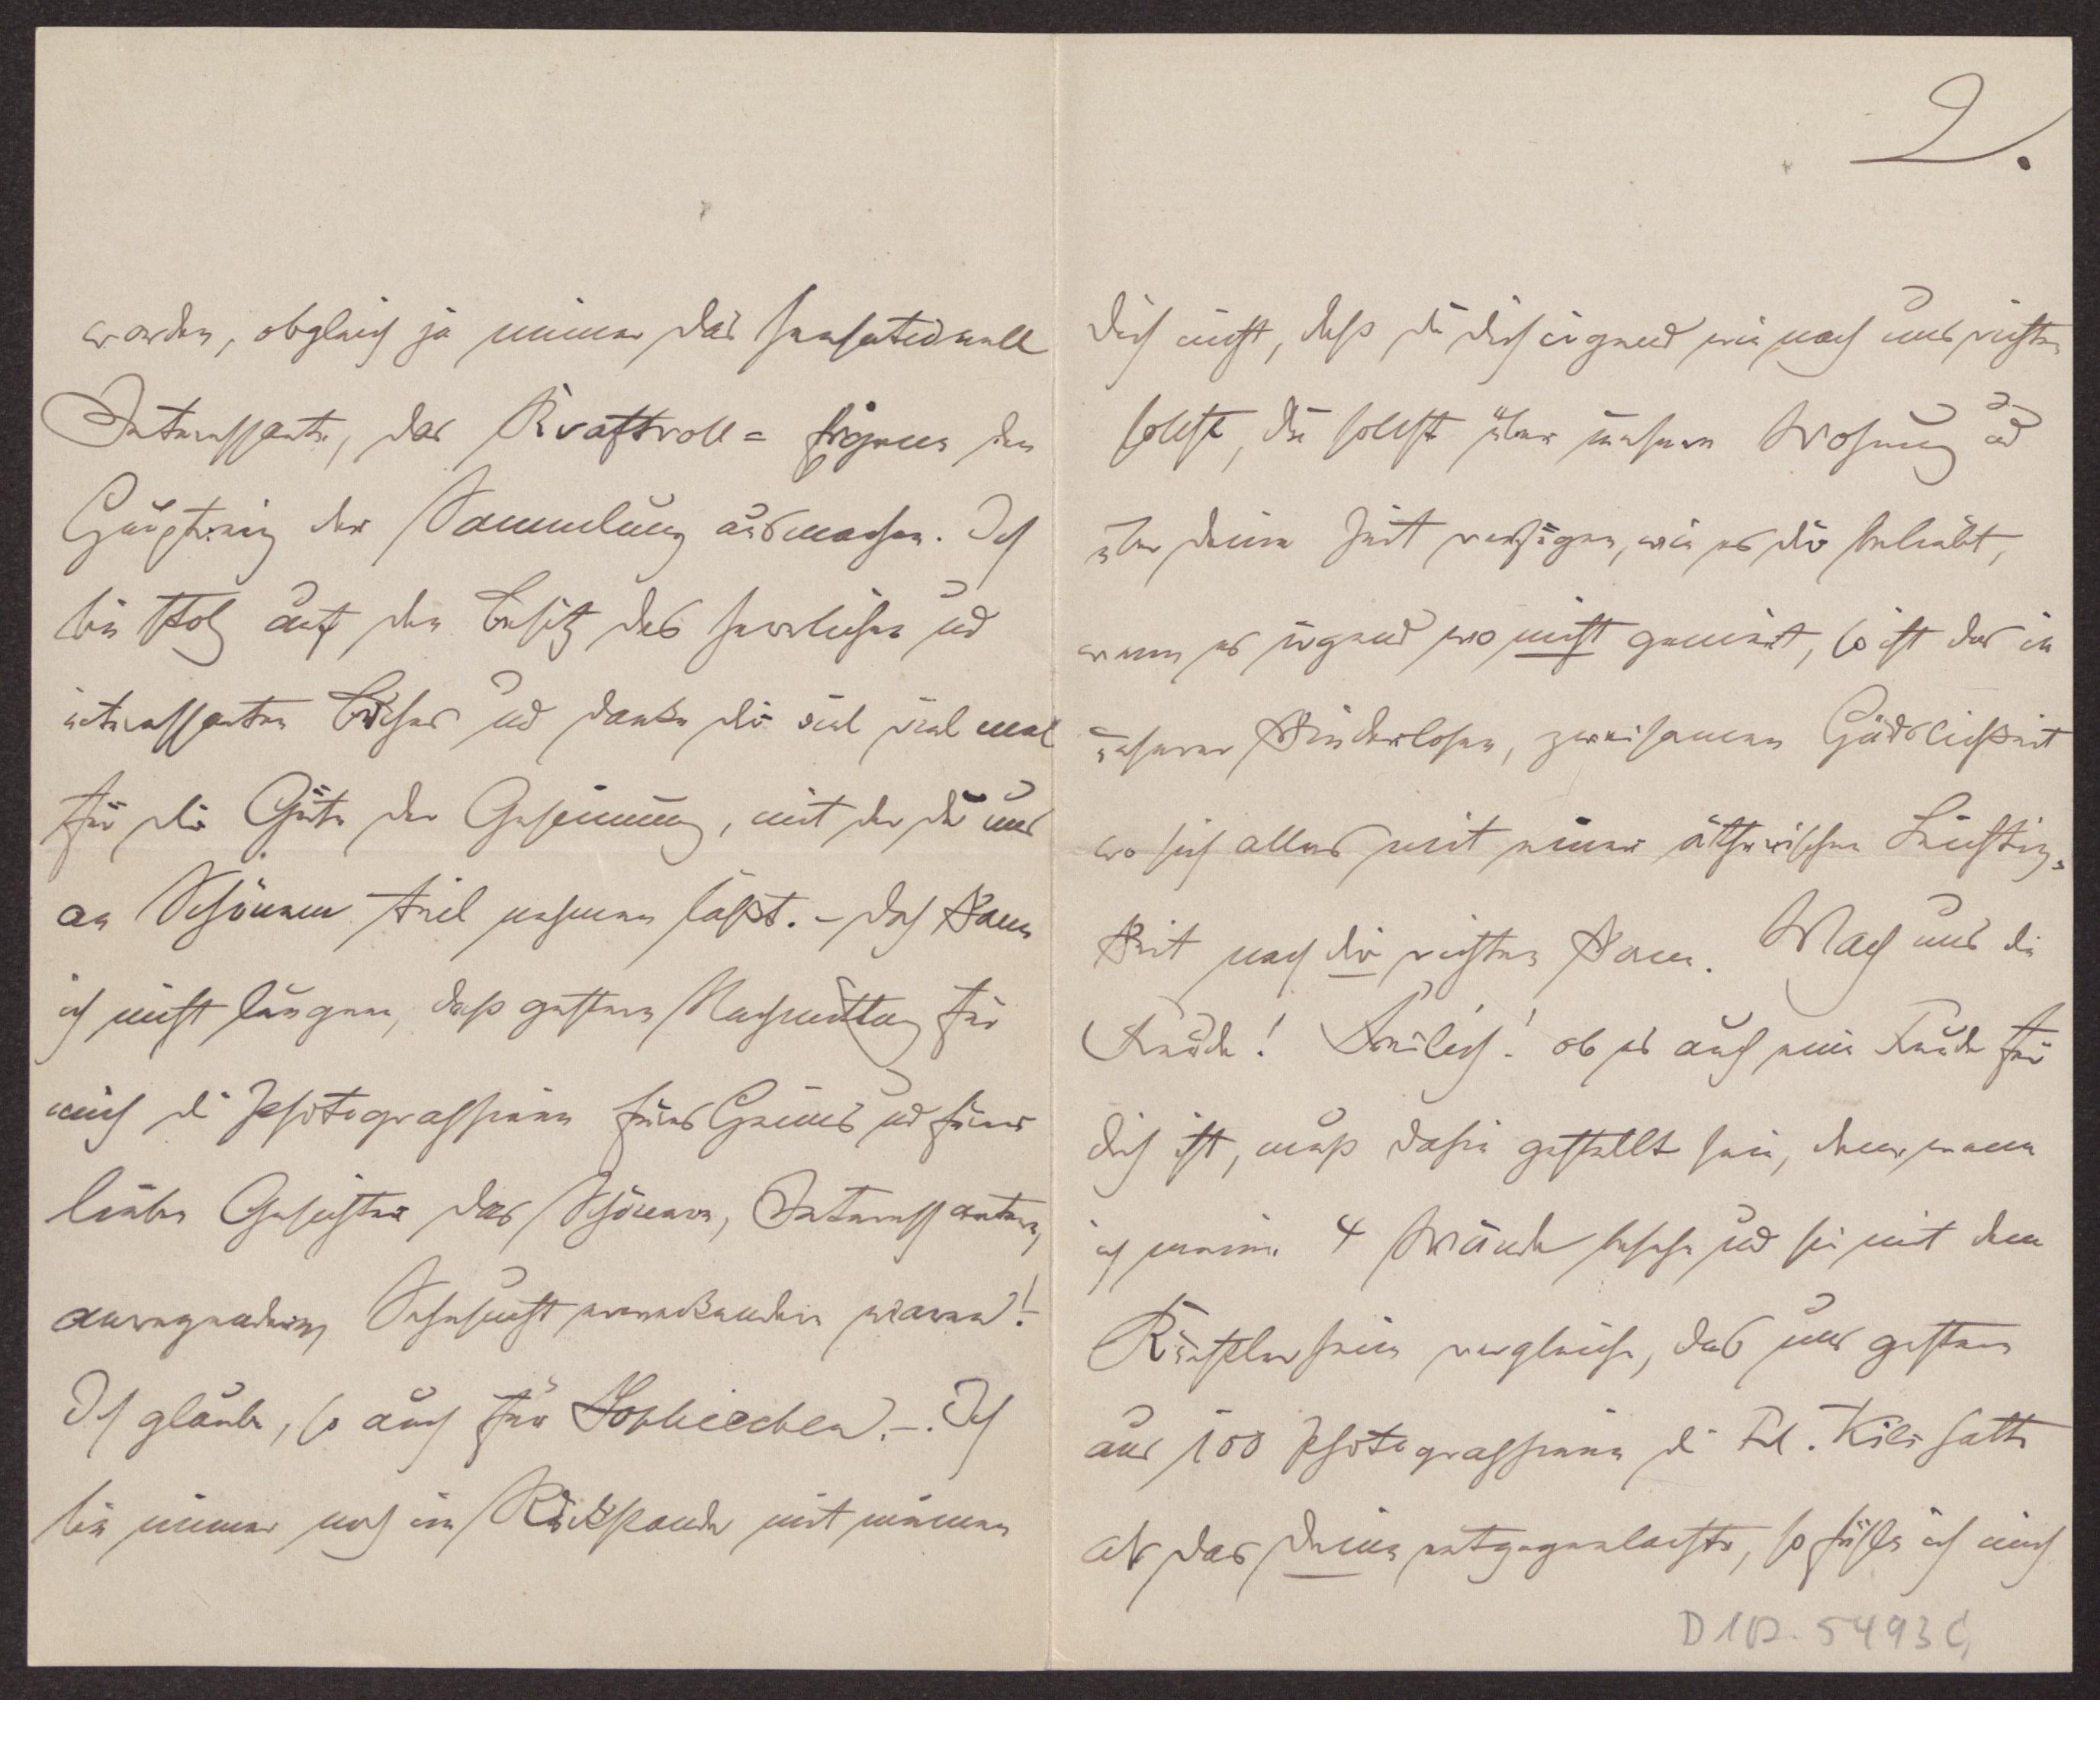 worden, obgleich ja immer das sensationell
Interessante, das Kraftvoll = eigene den
Hauptreiz der Sammlung ausmachen. Ich
bin stolz auf den Besitz des herrlichen und
interessanten Buches und danke dir viel viel mal
für die Güte der Gesinnung, mit der du uns
an Schönem teil nehmen läßt. – Doch kann
ich nicht läugnen, daß gestern Nachmittag für
mich die Photographieen seines Heims und seines
lieben Gesichtes das Schönere, Interessantere,
anregendere, Sehnsucht erweckendere waren! –
Ich glaube, so auch für Sophiechen. – Ich
bin immer noch im Rückstande mit meinem
2.
dich nicht, daß du dich irgend wie nach uns richten
sollst, du sollst über unsere Wohnung und
über deine Zeit verfügen, wie es dir beliebt,
wenn es irgend wo nicht geniert, so ist das in
unserer kinderlosen, zweisamen Häuslichkeit
wo sich alles mit einer ätherischen Leichtig-
keit nach dir richten kann. Mach uns die
Freude! Freilich! ob es auch eine Freude für
dich ist, muß dahin gestellt sein, denn wenn
ich meine 4 Wände besehe und sie mit dem
Künstlerheim vergleiche, das uns gestern
aus 100 Photographieen die Frl. Kili hatte
als das Deine entgegenlachte, so fühle ich mich
D 112. 5493 C,